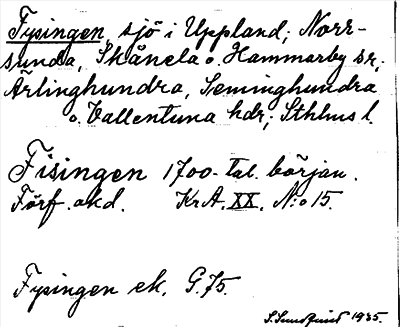 Fysingen, sjö i Uppland; Norr-
sunda, Skånela o. Hammarby sr;
Ärlinghundra, Seminghundra
o. Vallentuna hdr; Sthlms l.
Fisingen 1700-tal. början.
Förf. okd. KrA. XX. N:o 15.
Fysingen ek. G.75.
S. Sundquist 1935.